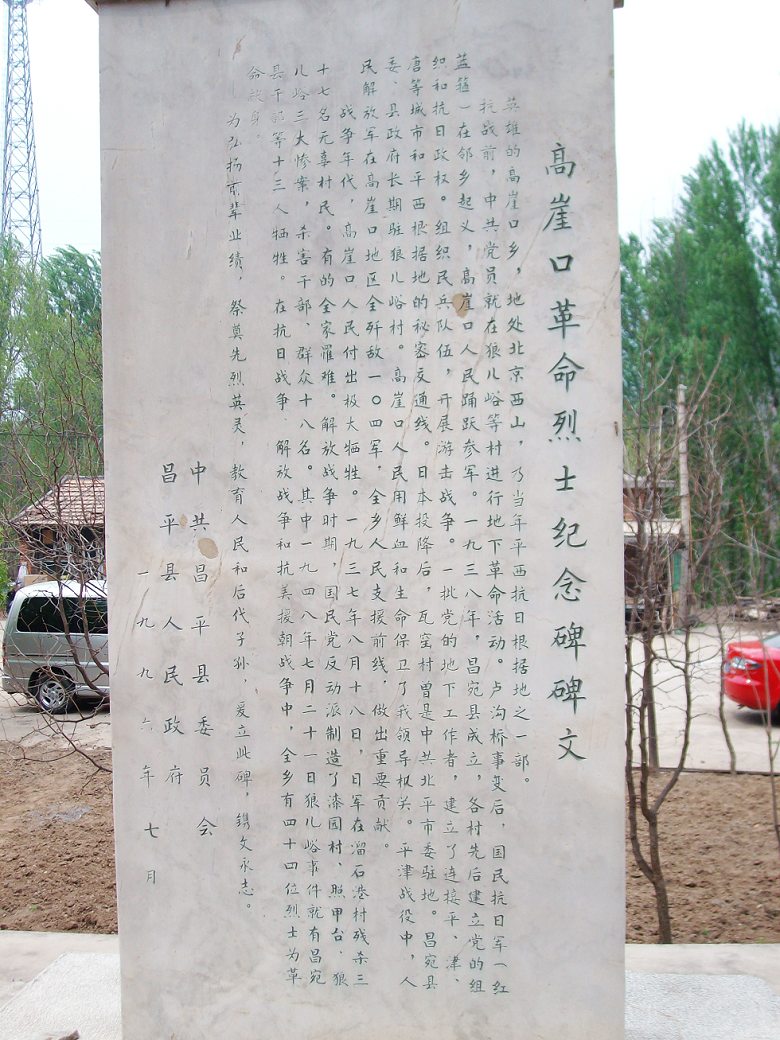 高崖口革命烈士纪念碑碑文
英雄的高崖口乡，地处北京西山，乃当年平西抗日根据地之一部。
抗战前，中共党员就在狼儿峪等村进行地下革命活动。卢沟桥事变后，国民抗日军（红
蓝箍）在邻乡起义，高崖口人民踊跃参军。一九三八年，昌宛县成立，各村先后建立党的组
织和抗日政权。组织民兵队伍，开展游击战争。一批党的地下工作者，建立了连接平、津、
唐等城市和平西根据地的秘密交通线。日本投降后，瓦窑村曾是中共北平市委驻地。昌宛县
委、县政府长期驻狼儿峪村。高崖口人民用鲜血和生命保卫了我领导机关。平津战役中，人
民解放军在高崖口地区全歼敌一〇四军，全乡人民支援前线，做出重要贡献。
战争年代，高崖口人民付出极大牺牲。一九三七年八月十八日，日军在溜石港村残杀三
十七名无辜村民。有的全家罹难。解放战争时期，国民党反动派制造了漆园村、照甲台、狼
儿峪三大惨案，杀害干部、群众十八名。其中一九四八年七月二十一日狼儿峪事件就有昌宛
县干部等十三人牺牲。在抗日战争、解放战争和抗美援朝战争中，全乡有四十四位烈士为革
命献身。
为弘扬前辈业绩，祭奠先烈英灵，教育人民和后代子孙，爰立此碑，镌文永志。
中共昌平县委员会
昌平县人民政府
一九九六年七月